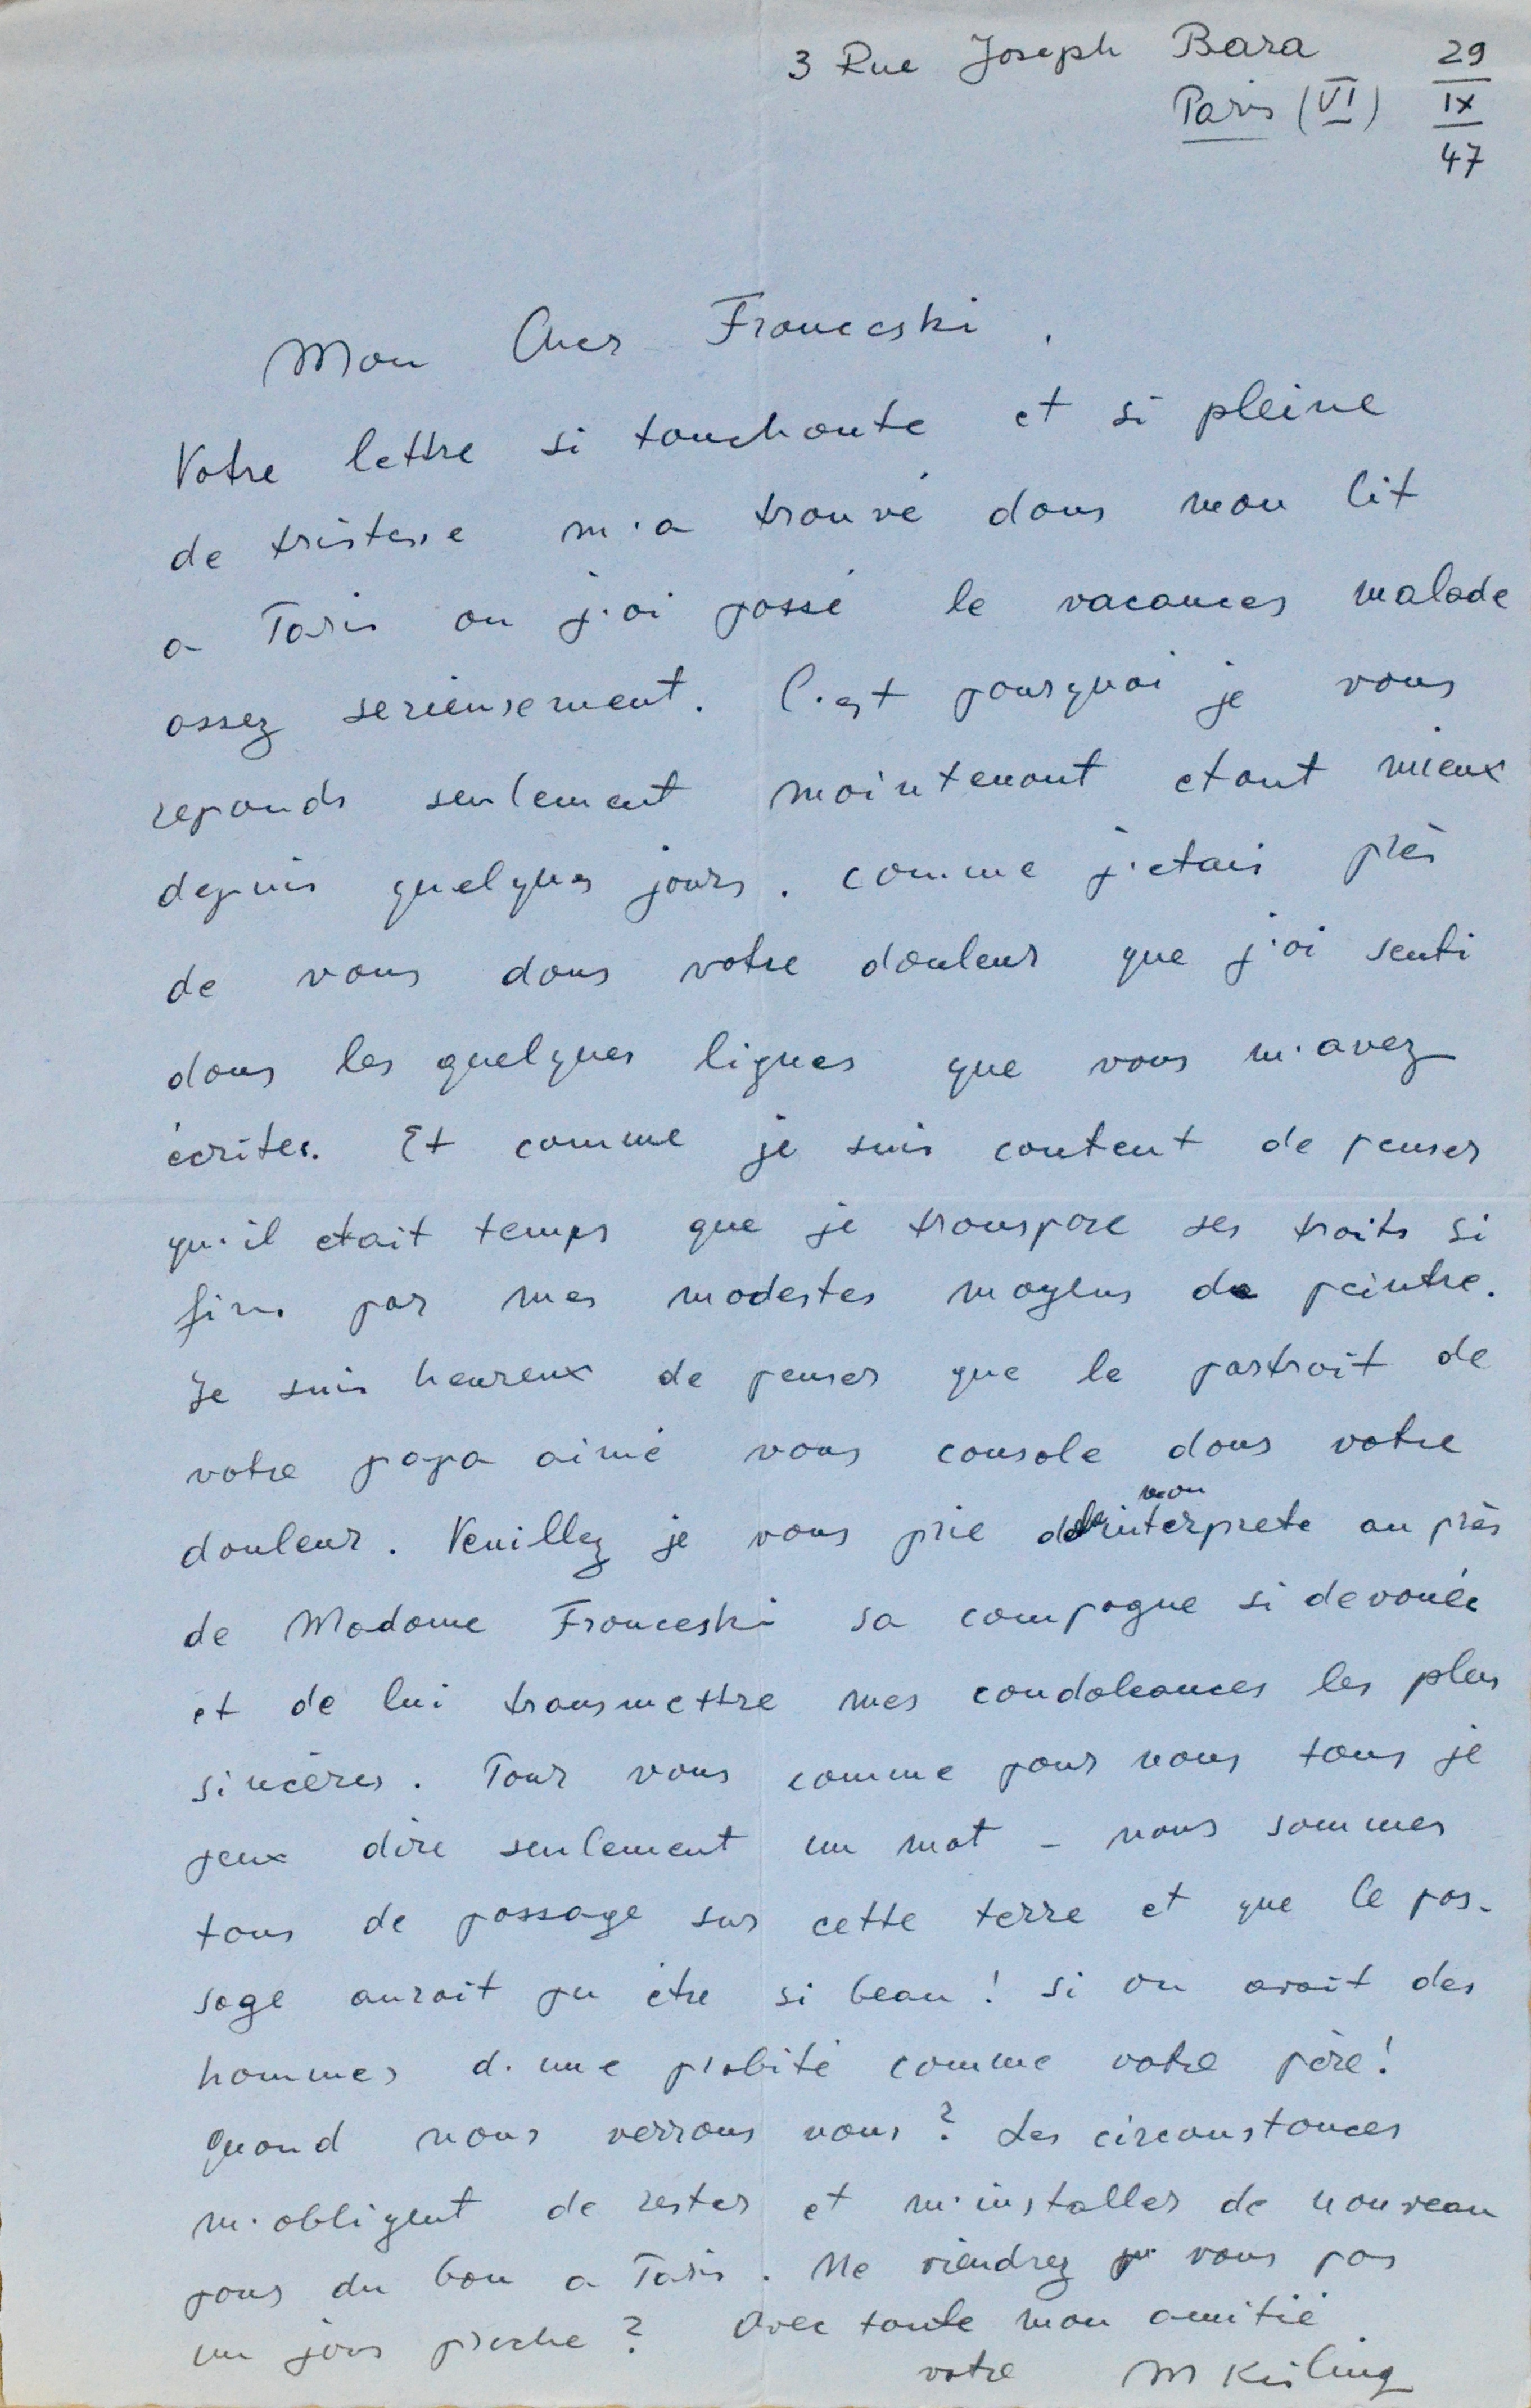 3 Rue Joseph Bara
Paris (VI)
29
IX
47
Mon Cher Franceski,
Votre lettre si touchante et si pleine
de tristesse m'a trouvé dans mon lit
a Paris ou j'ai passé le vacances malade
assez serieusement. C'est pourquoi je vous
reponds seulement maintenant etant mieux
depuis quelques jours. Comme j'etais près
de vous dans votre douleur que j'ai senti
dans les quelques lignes que vous m'avez
écrites. Et comme je suis content de penser
qu'il etait temps que je transpose ses traits si
fins par mes modestes moyens de peintre.
Je suis heureux de penser que le portrait de
votre papa aimé vous console dans votre
douleur. Veuillez je vous prie mon interprete au près
de Madame Franceski sa compagne si devouée
et de lui transmettre mes condoleances les plus
sincères. Pour vous comme pour nous tous je
peux dire seulement un mot - nous sommes
tous de passage sur cette terre et que le pas-
sage aurait pu être si beau! si on avait des
hommes d'une probité comme votre père!
Quand nous verrons nous? Les circonstances
m'obligent de rester et m'installer de nouveau
pour du bon a Paris. Ne viendrez vous pas
un jour proche? Avec toute mon amitié
votre M Kisling